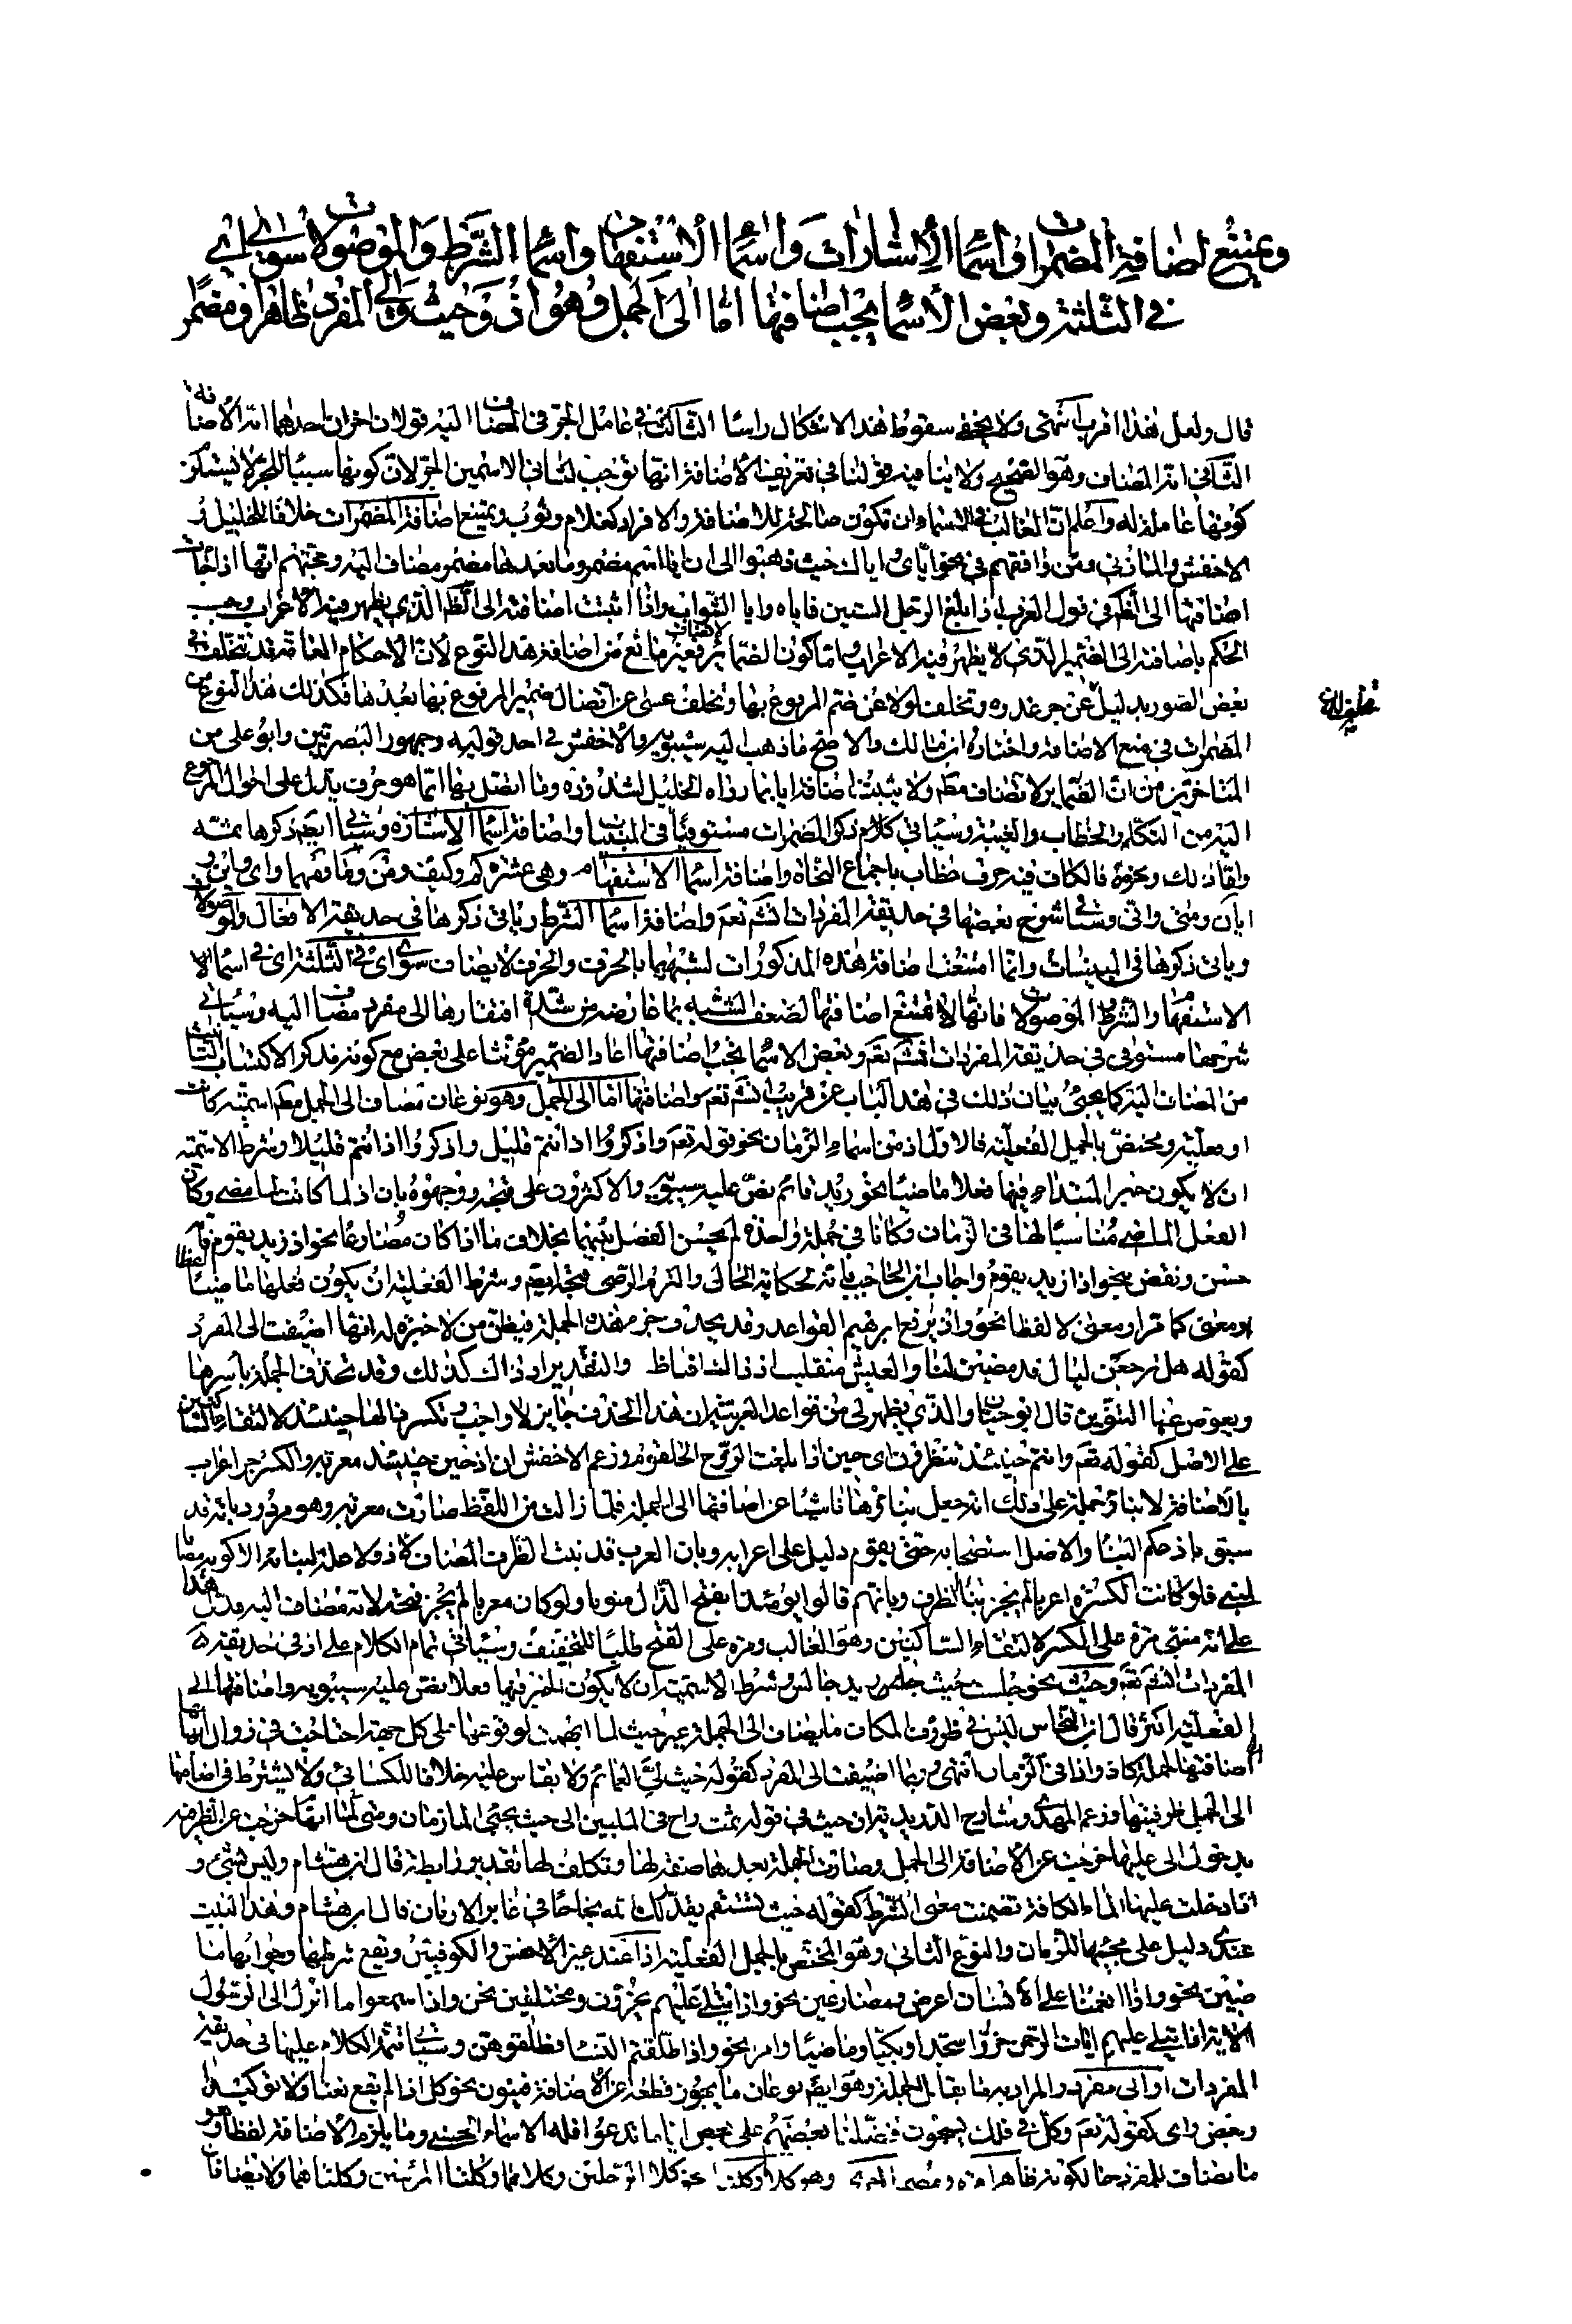 ويمتنع اضافة المضمرات واسما الاشارات واسما الاستفهام واسما الشرط والموصولات سوى اي
في الثلثة وبعض الاسما يجب اضافتها اما الى الجمل وهو اذ وحيث والى المفرد ظاهرا ومضمرا
قال ولعل هذا اقرب انتهى ولا يخفى سقوط هذا الاشكال راسا الثالث في عامل الجر في المضاف اليه قولان اخران احدهما انه الاضافة
الثاني انه المضاف وهو الصحيح ولا ينافيه قولنا في تعريف الاضافة انها توجب لثاني الاسمين الجر لان كونها سببا للجر لا يستلزم
كونها عاملة له واعلم ان الغالب في الاسماء ان تكون صالحة للاضافة والافراد كغلام وثوب ويمتنع اضافة المضمرات خلافا للخليل و
الاخفش والمازني ومن وافقهم في نحو اياي اياك حيث ذهبوا الى ان ايا اسم مضمر وما بعدها مضمر مضاف اليه وحجتهم انها اذا جاءت
اضافتها الى الظم في قول العرب اذا بلغ الرجل الستين فاياه وايا الشواب واذا اثبتت اضافته الى الظم الذي يظهر فيه الاعراب وجب
الحكم باضافته الى الضمير الذي لا يظهر فيه الاعراب واما كون الضمائر فغير مانع من اضافة هذا النوع لان الاحكام العامة قد تتخلف في
بعض الصور بدليل عن جر غدوة وتخلف لولا عن ضم المرفوع بها وتخلف عسى عن اتصال ضمير المرفوع بها بعدها فكذلك هذا النوع من
المضمرات في منع الاضافة واختاره ابن مالك والاصح ما ذهب اليه سيبويه والاخفش في احد قوليه وجمهور البصريين وابو علي من
المتاخرين من ان الضماير لا تضاف مطم ولا يثبت اضافة ايا بما رواه الخليل لشذوذه وما اتصل بها انما هو حرف يدل على احوال المرجوع
اليه من التكلم والخطاب والغيبة وسياتي كلام ذكر المضمرات مستوفيا في المبنيات واضافة اسما الاشارة وسياتي ايضم ذكرها ثمة
واما ذلك ونحوه فالكاف فيه حرف خطاب باجماع النحاة واضافة اسما الاستفهام وهي عشرة كم وكيف ومن وما ومهما واي واين و
ايان ومتى واني وسياتي شرح بعضها في حديقة المفردات انشم تعم واضافة اسما الشرط وياتي ذكرها في حديقة الافعال والموصولات
وياتي ذكرها في المبنيات وانما امتنعت اضافة هذه المذكورات لشبهها بالحرف والحرف لا يضاف سوى اي في الثلثة اي في اسما
الاستفهام والشرط والموصولات فانها لا تمتنع اضافتها لضعف الشبه بما عارضه من شدة افتقارها الى مفرد مضاف اليه وسياتي
شرحها مستوفى في حديقة المفردات انشم تعم وبعض الاسما يجب اضافتها اعاد الضمير مؤنثا على بعض مع كونه مذكرا لاكتسابه التانيث
من المضاف اليه كما يجئ بيان ذلك في هذا الباب عن قريب انشم تعم واضافتها اما الى الجمل وهو نوعان مضاف الى الجمل مطم اسمية كانت
او فعلية ومختص بالجمل الفعلية فالاول اذ من اسماء الزمان نحو قوله تعم واذكروا اذ انتم قليل واذكروا اذ كنتم قليلا وشرط الاسمية
ان لا يكون خبر المبتداء فيها فعلا ماضيا نحو زيد قام نص عليه سيبويه والاكثرون على قبحه ووجهوه بان اذ لما كانت لما مضى وكان
الفعل الماضي مناسبا لها في الزمان وكانا في جملة واحدة لم يحسن الفصل بينهما بخلاف ما اذا كان مضارعا نحو اذ زيد يقوم فانه
حسن ونقض بنحو اذا زيد يقوم واجاب ابن الحاجب بانه لحكاية الحال والتزم الرضى قبحه ايضم وشرط الفعلية ان يكون فعلها ماضيا لفظا
ومعنى كما مر او معنى لا لفظا نحو واذ يرفع ابرهيم القواعد وقد يحذف جزء هذه الجملة فيظن من لا خبرة له انها اضيفت الى المفرد
كقوله هل ترجعن ليال قد مضين لنا والعيش منقلب اذ ذاك افناظ والتقدير اذ ذاك كذلك وقد تحذف الجملة باسرها
ويعوض عنها التنوين قال ابو حيان والذي يظهر لي من قواعد العربية ان هذا الحذف جايز لا واجب وتكسر ذالها حينئذ لالتقاء الساكنين
على الاصل كقوله تعم وانتم حينئذ تنظرون اي حين اذ بلغت الروح الحلقوم وزعم الاخفش ان اذ حين حينئذ معربة والكسر جر اعراب
بالاضافة لا بناء وحمله على ذلك انه جعل بناءها ناشيا عن اضافتها الى الجملة فلما زالت من اللفظ صارت معربة وهو مردود بانه قد
سبق باذ حكم البناء والاصل استصحابه حتى يقوم دليل على اعرابه وبان العرب قد بنت الظرف المضاف لاذ ولا علة لبنائه الا كونه مضافا
لمبني فلو كانت الكسرة اعرابا لم يجز بناء الظرف وبانهم قالوا يومئذا بفتح الذال منونا ولو كان معربا لم يجز فتحه لانه مضاف اليه فدل هذا
على انه مبني مرة على الكسر لالتقاء الساكنين وهو الغالب ومرة على الفتح طلبا للتخفيف وسياتي تمام الكلام على اذ في حديقة
المفردات انشم تعم وحيث نحو جلست حيث جلس زيد جالس وشرط الاسمية ان لا يكون الخبر فيها فعلا نص عليه سيبويه واضافتها الى
الفعلية اكثر قال ابن النحاس ليس في ظروف المكان ما يضاف الى الجملة غير حيث لما ابهمت لوقوعها على كل جهة احتاجت في زوال ابهامها
الى اضافتها لجملة كاذ واذا في الزمان انتهى وربما اضيفت الى المفرد كقوله حيث لي العمائم ولا يقاس عليه خلافا للكسائي ولا يشترط في اضافتها
الى الجمل ظرفيتها وزعم المهدوي شارح الدريدية ان حيث في قوله ثمت راح في الملبين الى حيث تحجى المازمان ومنى لما انها خرجت عن الظرفية
بدخول الى عليها خرجت عن الاضافة الى الجمل وصارت الجملة بعدها صفة لها وتكلف لها تقدير رابطة قال ابن هشام وليس بشئ و
اذا دخلت عليها الماء الكافة تضمنت معنى الشرط كقوله حيث تستقم يقدر لك الله نجاحا في غابر الازمان قال ابن هشام وهذا البيت
عندي دليل على مجيئها للزمان والنوع الثاني وهو المختص بالجمل الفعلية اذا عند غير الاخفش والكوفيين ويقع شرطها وجوابها ما
ضيين نحو واذا انعمنا على الانسان اعرض ومضارعين نحو واذا يتلى عليهم يخرون ومختلفين نحو واذا سمعوا ما انزل الى الرسول
الاية اذا يتلى عليهم ايات الرحمن خروا سجدا وبكيا وماضيا وامرا نحو واذا طلقتم النسا فطلقوهن وسياتي تمة الكلام عليها في حديقة
المفردات او الى مفرد والمراد به ما يقابل الجملة وهو ايضم نوعان ما يجوز قطعه عن الاضافة فينون نحو كل اذا لم يقع نعتا ولا توكيدا
وبعض واي كقوله تعم وكل في فلك يسبحون فضلنا بعضهم على بعض ايا ما تدعوا فله الاسماء الحسنى وما يلزم الاضافة لفظا وهو
ما يضاف للمفرد حالكونه ظاهرا مرة ومضمرا اخرى وهو كلا وكلتا نحو كلا الرجلين وكلاهما وكلتا المرئتين وكلتاهما ولا يضافان